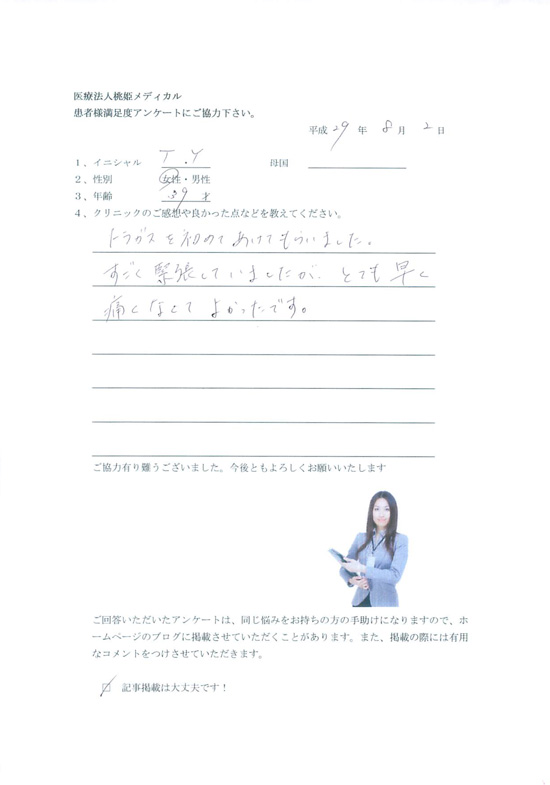 医療法人桃姫メディカル
患者様満足度アンケートにご協力下さい。
平成 29 年 8 月 2 日
1、イニシャル T.Y 母国
2、性別 女性・男性
3、年齢 才
4、クリニックのご感想や良かった点などを教えてください。
トラガスを初めてあけてもらいました。
すごく緊張していましたが、とても早く
痛くなくてよかったです。
ご協力有り難うございました。今後ともよろしくお願いいたします
ご回答いただいたアンケートは、同じ悩みをお持ちの方の手助けになりますので、ホ
ームページのブログに掲載させていただくことがあります。また、掲載の際には有用
なコメントをつけさせていただきます。
記事掲載は大丈夫です！